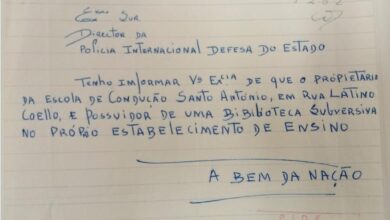 Exmº Snr.
Director da
Policia Internacional Defesa do Estado
Tenho imformar Vª Excia de que o propietario
da Escola de Condução Santo António, em Rua Latino
Coello, e possuidor de uma Bibilioteca Subversiva
no própio estabelecimento de ensino
A bem da Nação